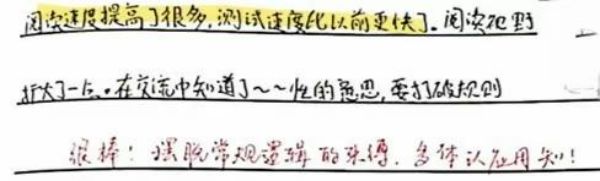 阅读速度提高了很多,测试速度比以前更快了。阅读视野
扩大了一点。在交流中知道了~~性的意思,要打破规则
很棒!摆脱常规逻辑的束缚,多体认应用知!